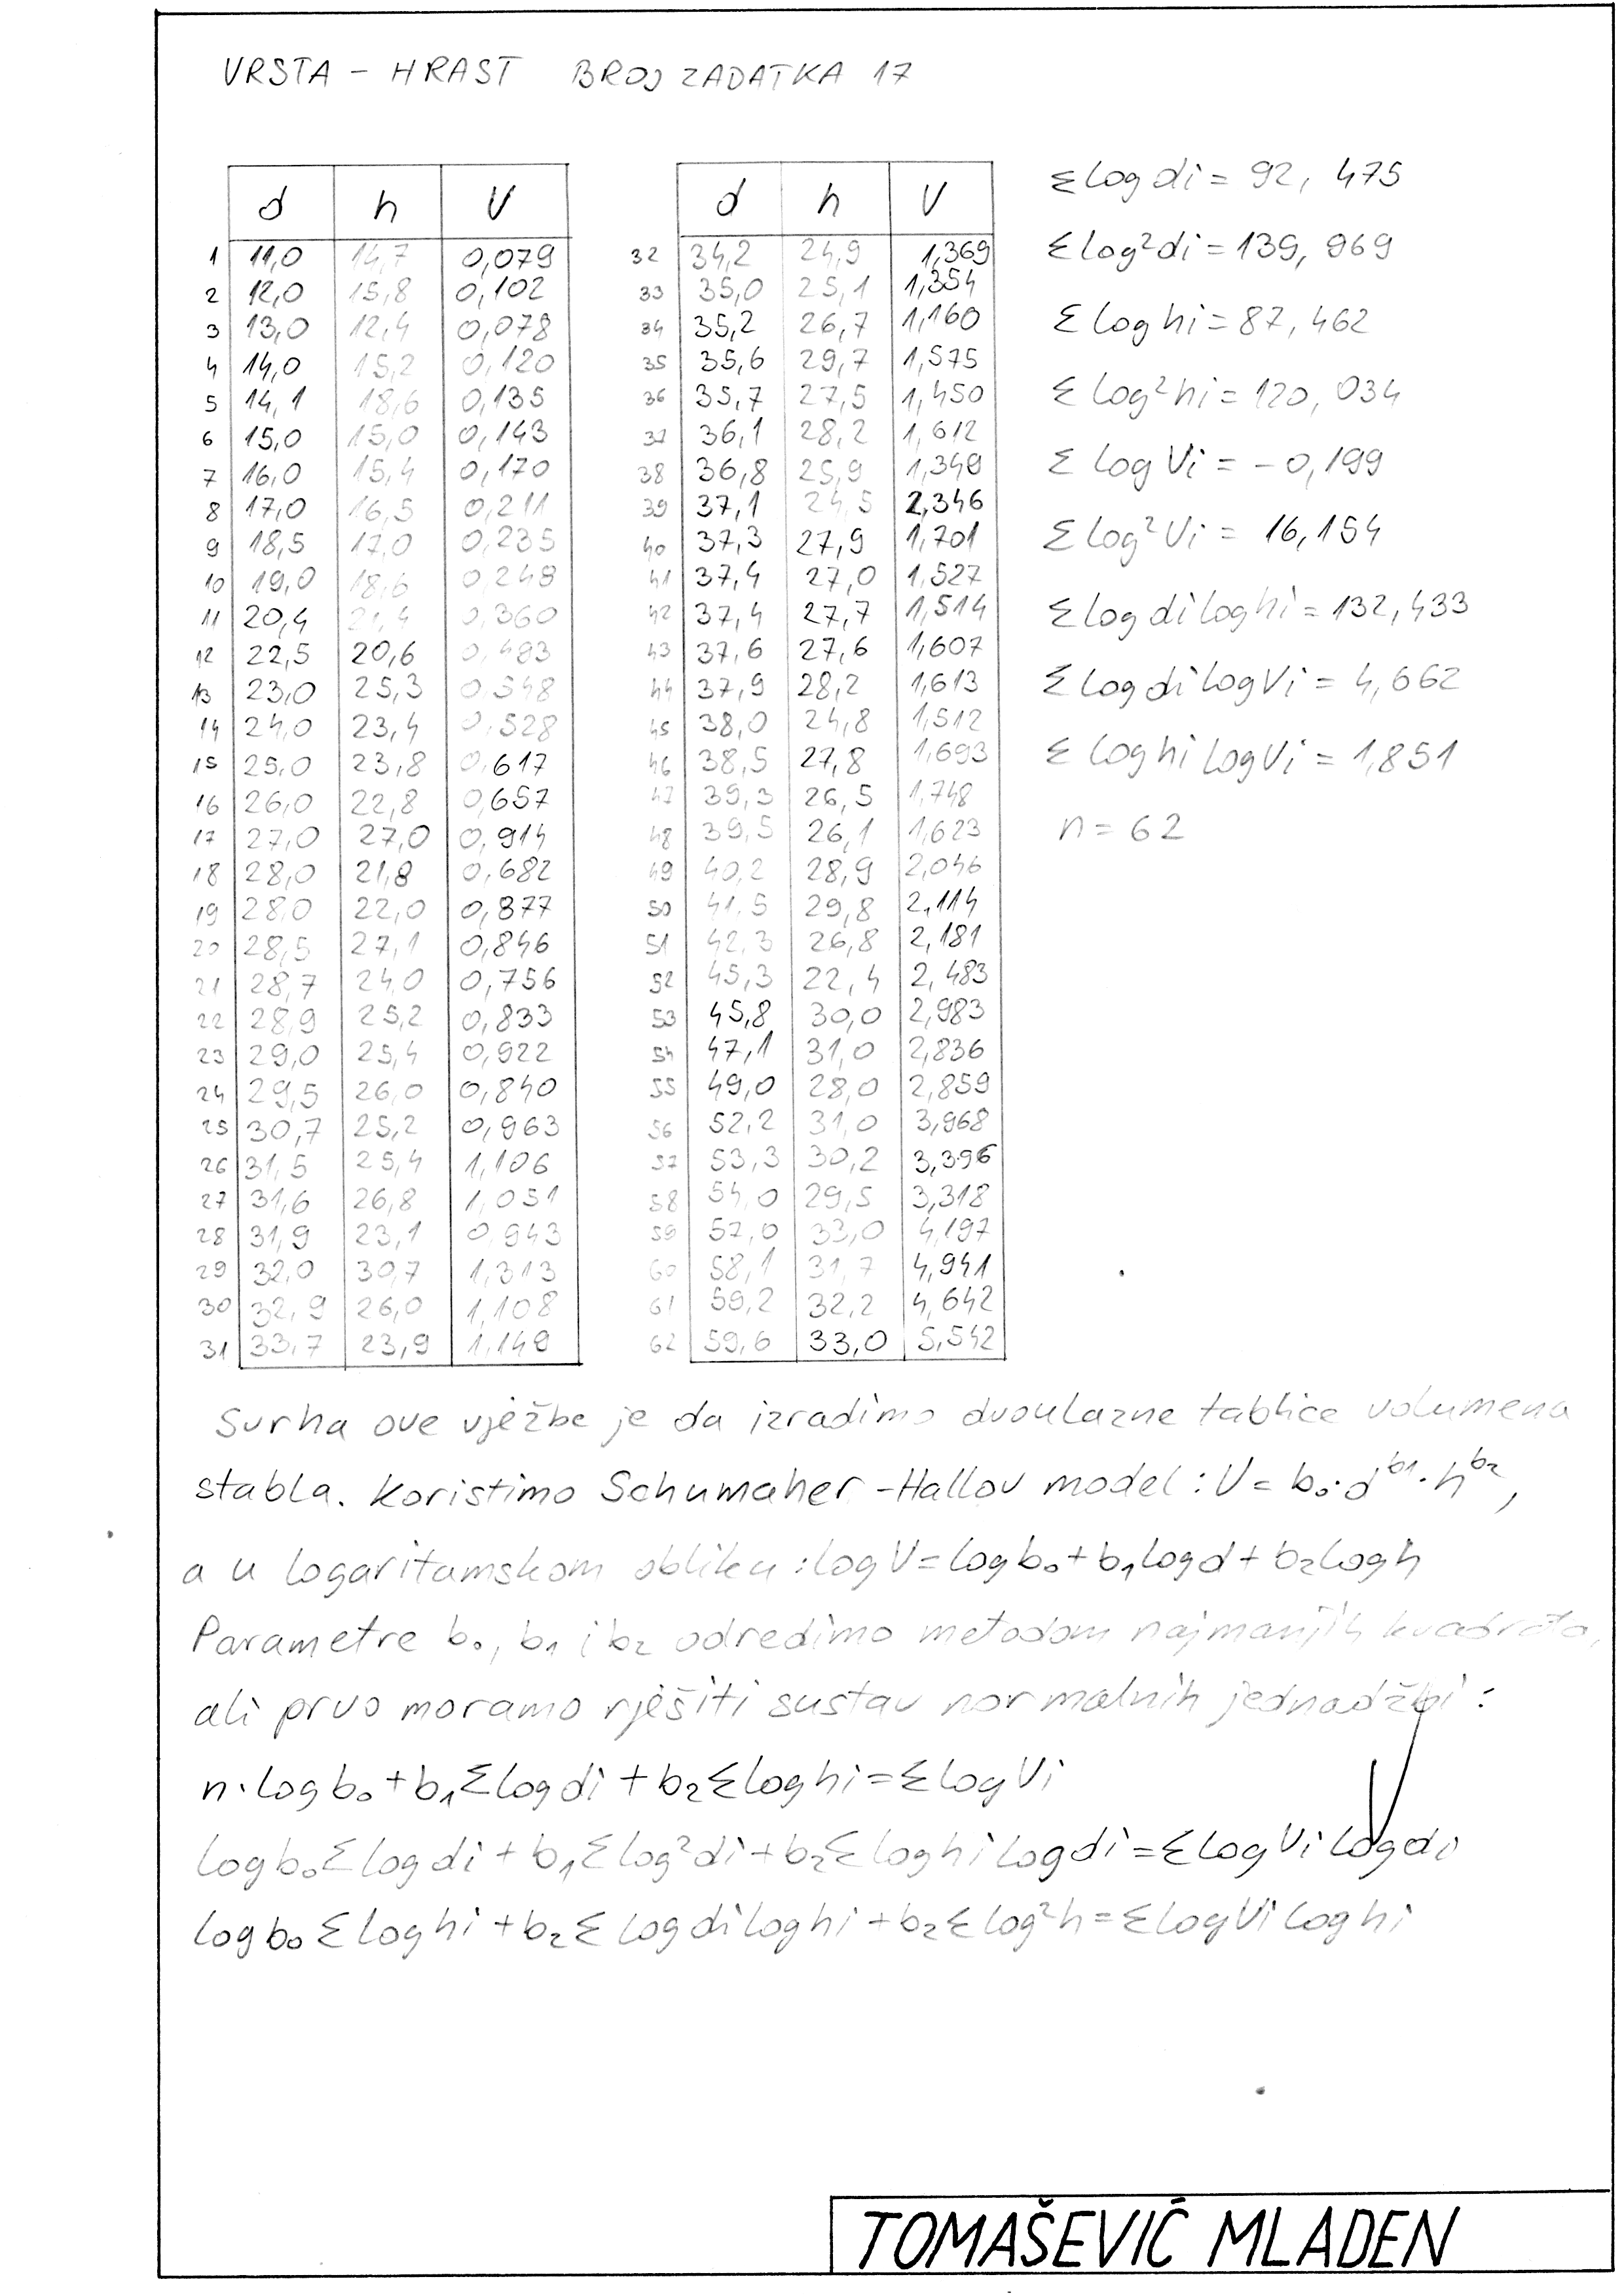 VRSTA - HRAST BROJ ZADATKA 17
d h V
1 11,0 14,7 0,079
2 12,0 15,8 0,102
3 13,0 12,4 0,078
4 14,0 15,2 0,120
5 14,1 18,6 0,135
6 15,0 15,0 0,143
7 16,0 15,4 0,170
8 17,0 16,5 0,211
9 18,5 17,0 0,235
10 19,0 18,6 0,248
11 20,4 21,4 0,360
12 22,5 20,6 0,483
13 23,0 25,3 0,548
14 24,0 23,4 0,528
15 25,0 23,8 0,617
16 26,0 22,8 0,657
17 27,0 27,0 0,914
18 28,0 21,8 0,682
19 28,0 22,0 0,877
20 28,5 27,1 0,846
21 28,7 24,0 0,756
22 28,9 25,2 0,833
23 29,0 25,4 0,922
24 29,5 26,0 0,840
25 30,7 25,2 0,963
26 31,5 25,4 1,106
27 31,6 26,8 1,051
28 31,9 23,1 0,943
29 32,0 30,7 1,313
30 32,9 26,0 1,108
31 33,7 23,9 1,149
d h V
32 34,2 24,9 1,369
33 35,0 25,1 1,354
34 35,2 26,7 1,160
35 35,6 29,7 1,575
36 35,7 27,5 1,450
37 36,1 28,2 1,612
38 36,8 25,9 1,349
39 37,1 24,5 2,346
40 37,3 27,9 1,701
41 37,4 27,0 1,527
42 37,4 27,7 1,514
43 37,6 27,6 1,607
44 37,9 28,2 1,613
45 38,0 24,8 1,512
46 38,5 27,8 1,693
47 39,3 26,5 1,748
48 39,5 26,1 1,623
49 40,2 28,9 2,046
50 41,5 29,8 2,114
51 42,3 26,8 2,181
52 45,3 22,4 2,483
53 45,8 30,0 2,983
54 47,1 31,0 2,836
55 49,0 28,0 2,859
56 52,2 31,0 3,968
57 53,3 30,2 3,396
58 54,0 29,5 3,318
59 57,0 33,0 4,197
60 58,1 31,7 4,941
61 59,2 32,2 4,642
62 59,6 33,0 5,542
Σ log di = 92,475
Σ log²di = 139,969
Σ log hi = 87,462
Σ log²hi = 120,034
Σ log Vi = -0,199
Σ log²Vi = 16,154
Σ log di log hi = 132,433
Σ log di log Vi = 4,662
Σ log hi log Vi = 1,851
n = 62
Svrha ove vježbe je da izradimo dvoulazne tablice volumena
stabla. Koristimo Schumaher-Hallov model: V = b₀·d^b₁·h^b₂,
a u logaritamskom obliku: log V = log b₀ + b₁ log d + b₂ log h
Parametre b₀, b₁ i b₂ odredimo metodom najmanjih kvadrata,
ali prvo moramo rješiti sustav normalnih jednadžbi:
n·log b₀ + b₁ Σ log di + b₂ Σ log hi = Σ log Vi
log b₀ Σ log di + b₁ Σ log²di + b₂ Σ log hi log di = Σ log Vi log di
log b₀ Σ log hi + b₂ Σ log di log hi + b₂ Σ log²h = Σ log Vi log hi
TOMAŠEVIĆ MLADEN